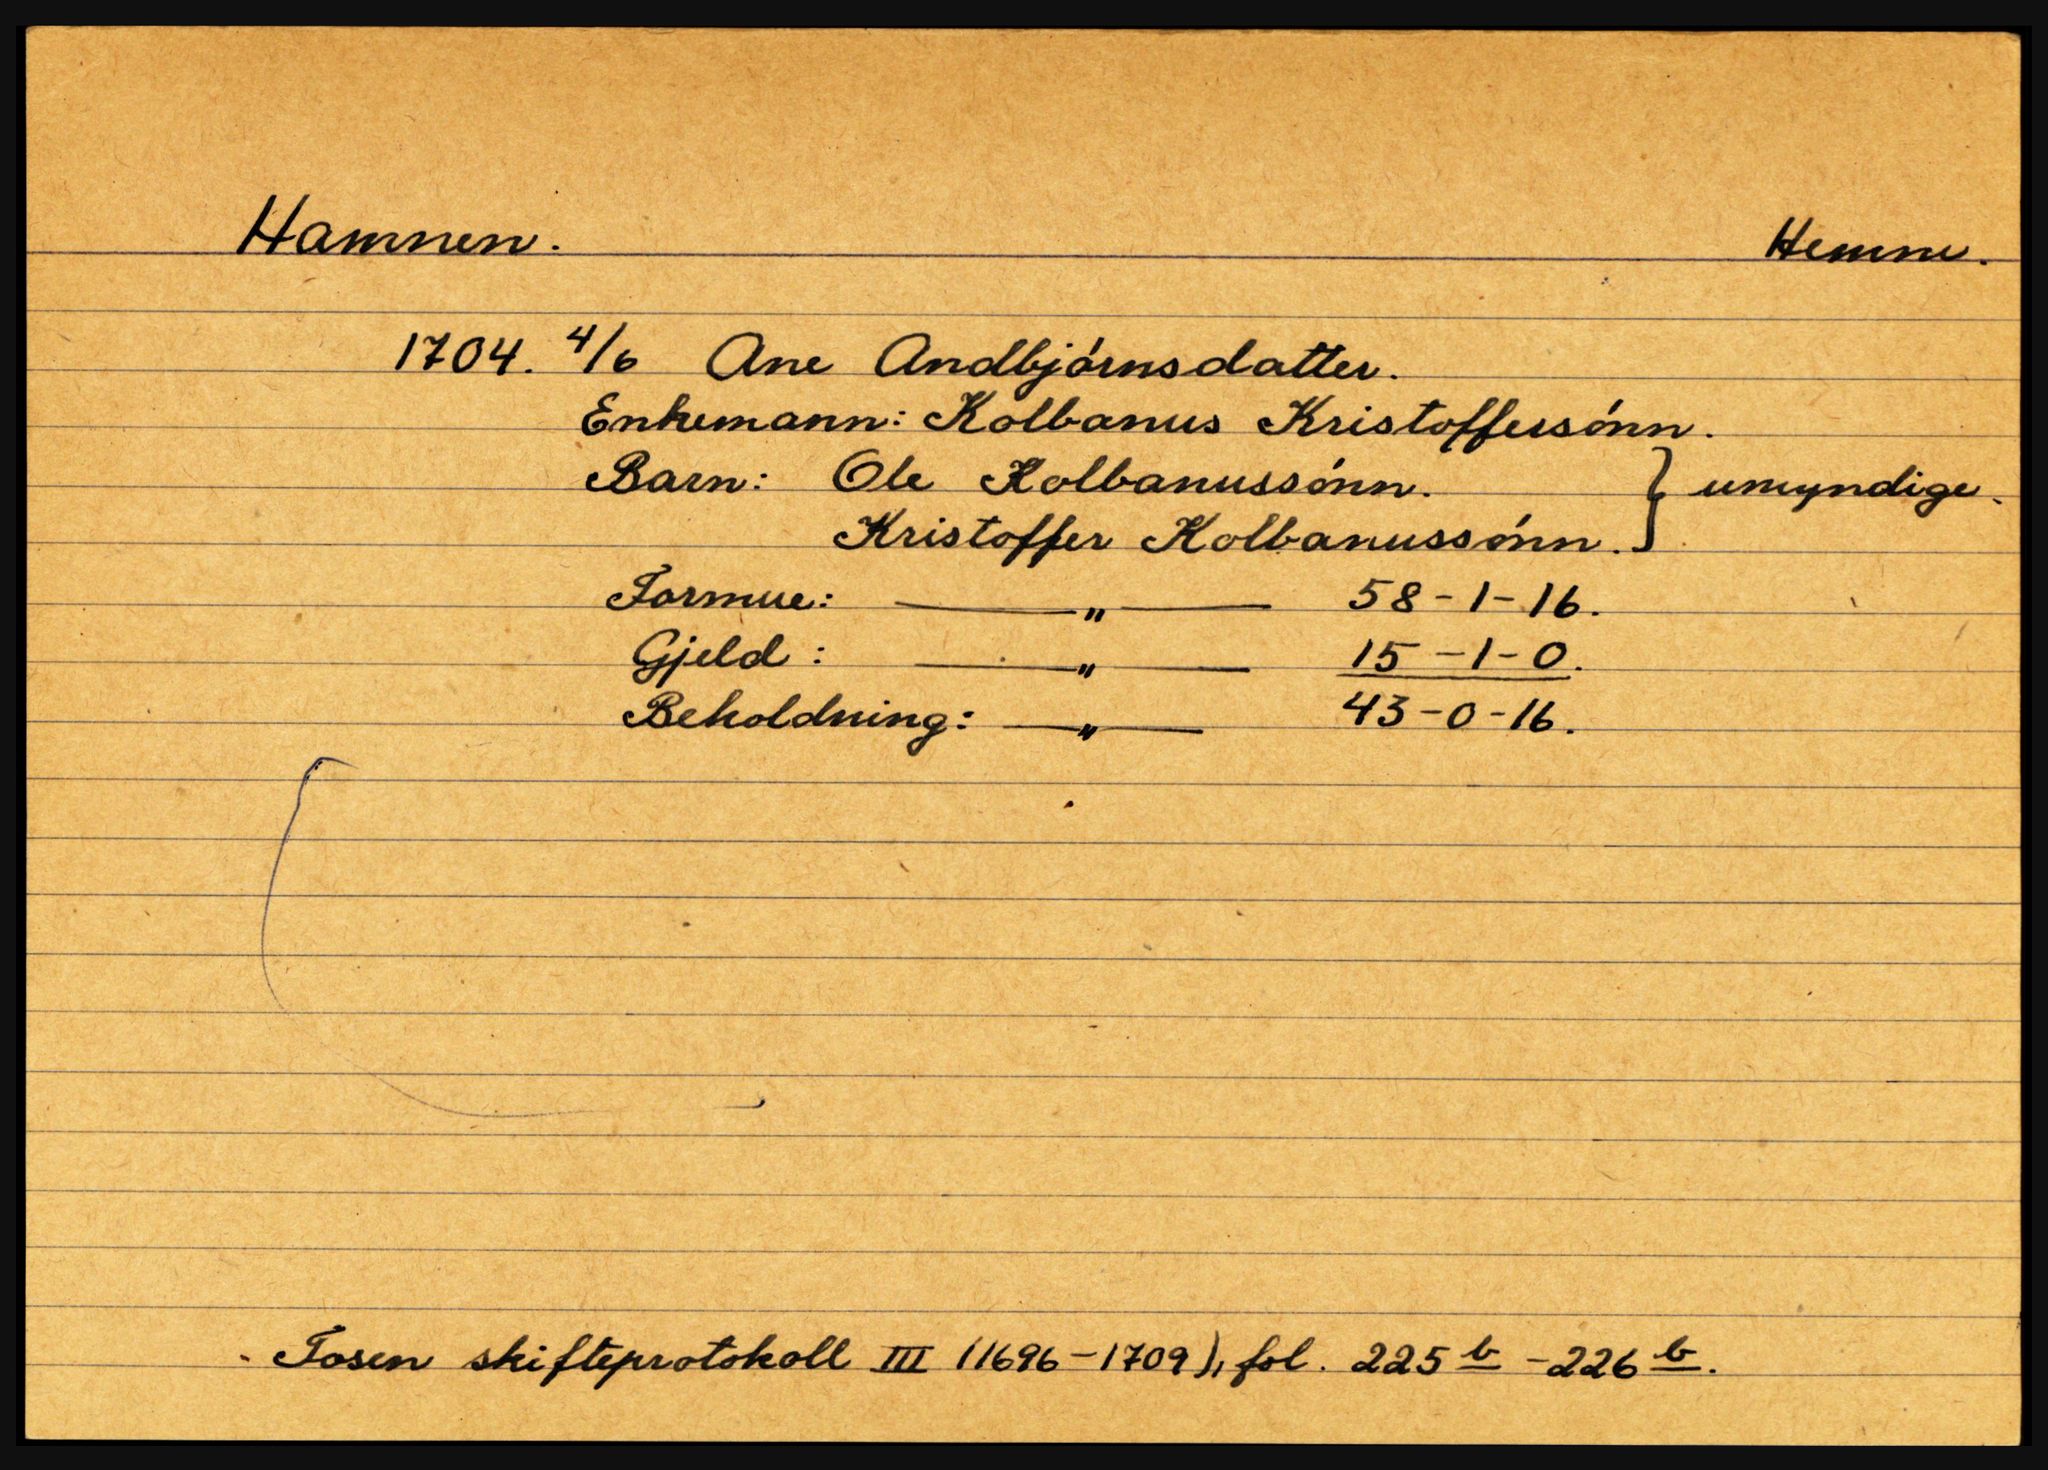 Hamnen. Hemne.
1704. 4/6 Ane Andbjórnsdatter.
Enkemann: Kolbanus Kristofferssónn.
Barn: Ole Kolbanussónn. } umyndige.
Kristoffer Kolbanussónn.
Formue: — " — 58-1-16.
Gjeld: — " — 15-1-0.
Beholdning: — " — 43-0-16.
Fosen skifteprotokoll III (1696-1709), fol. 225 b - 226 b.